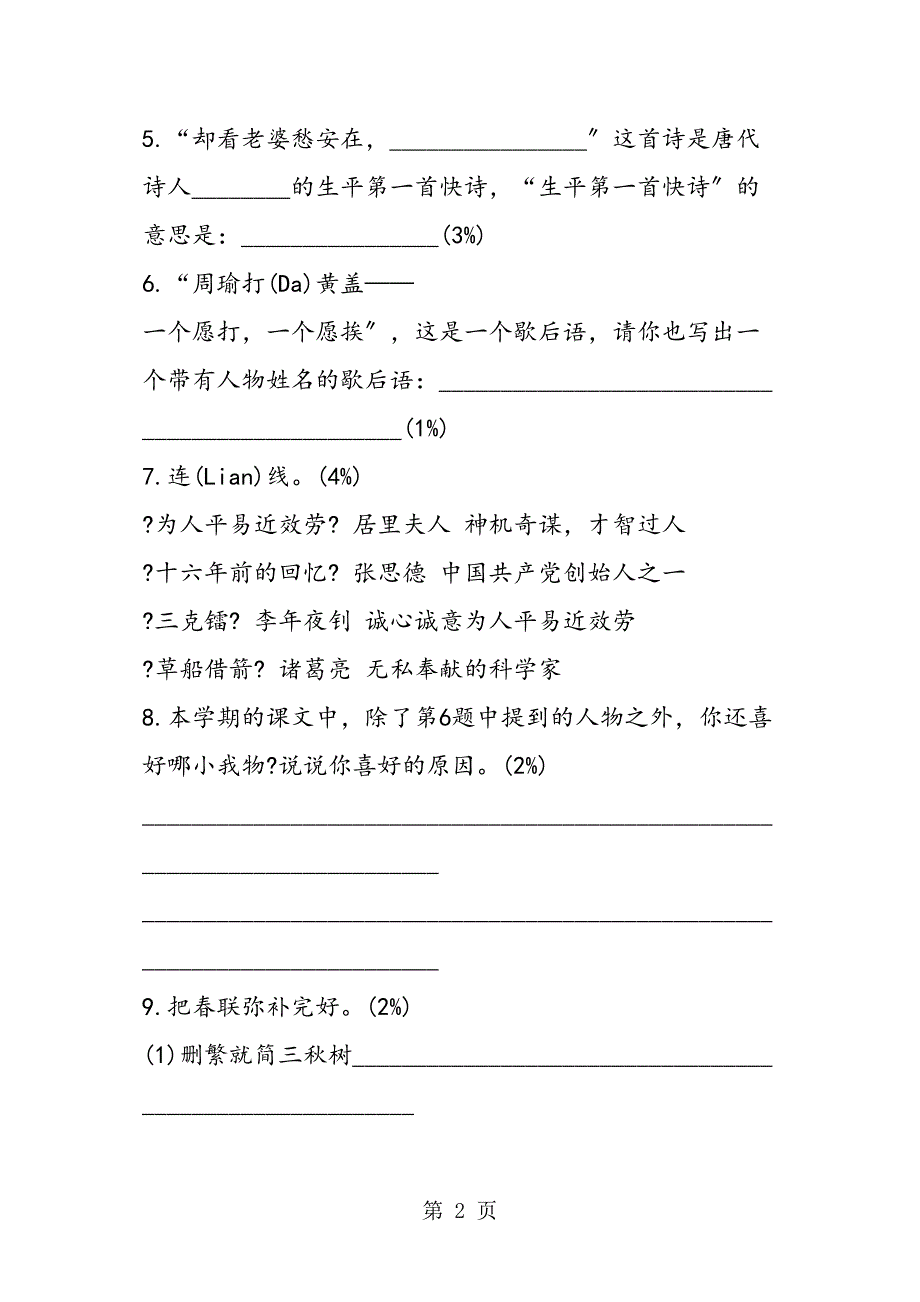 5.“却看老婆愁安在，________________〞这首诗是唐代
诗人________的生平第一首快诗，“生平第一首快诗〞的
意思是：________________(3%)
6.“周瑜打(Da)黄盖——
一个愿打，一个愿挨〞，这是一个歇后语，请你也写出一
个带有人物姓名的歇后语：___________________________
_____________________(1%)
7.连(Lian)线。(4%)
?为人平易近效劳? 居里夫人 神机奇谋，才智过人
?十六年前的回忆? 张思德 中国共产党创始人之一
?三克镭? 李年夜钊 诚心诚意为人平易近效劳
?草船借箭? 诸葛亮 无私奉献的科学家
8.本学期的课文中，除了第6题中提到的人物之外，你还喜
好哪小我物?说说你喜好的原因。(2%)
___________________________________________________
________________________
___________________________________________________
________________________
9.把春联弥补完好。(2%)
(1)删繁就简三秋树__________________________________
______________________
第 2 页